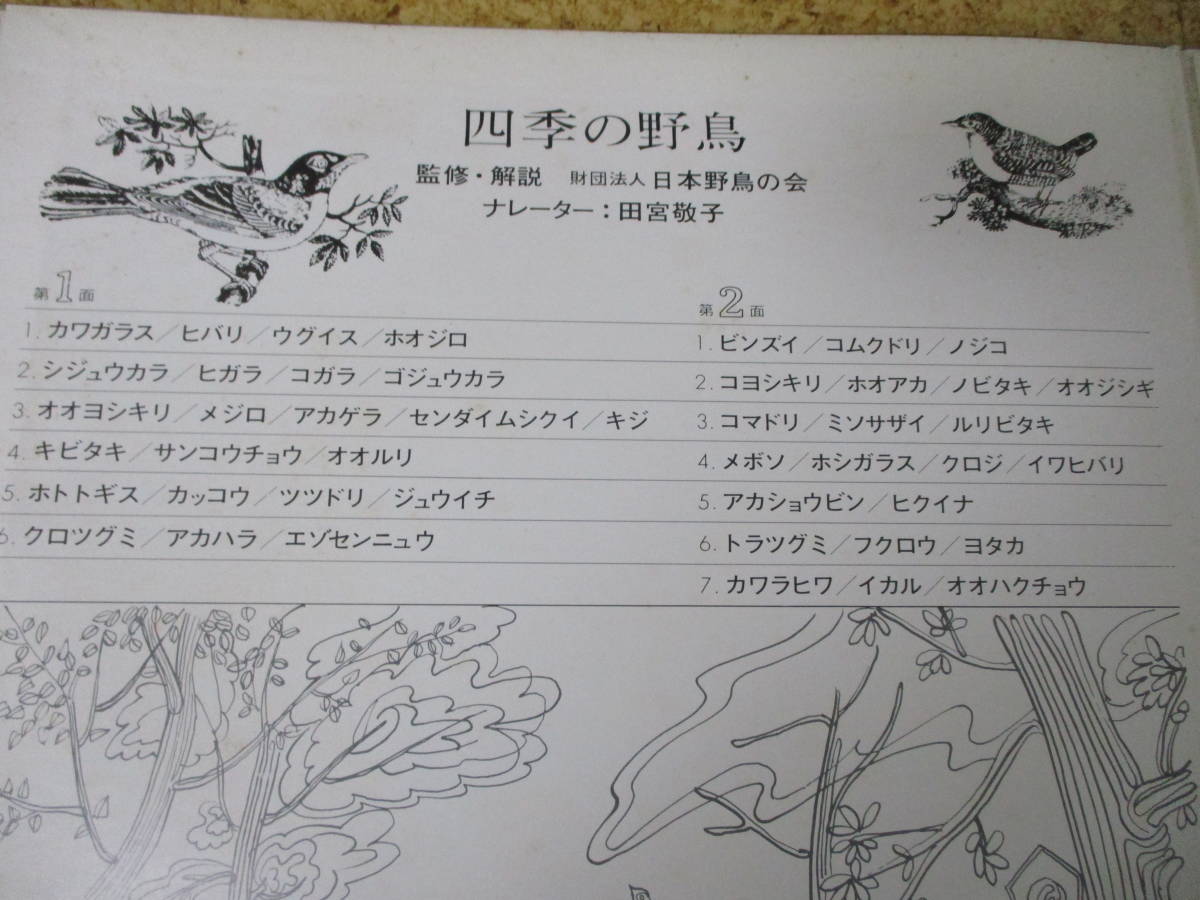 四季の野鳥
監修・解説 財団法人 日本野鳥の会
ナレーター：田宮敬子
第1面
1. カワガラス／ヒバリ／ウグイス／ホオジロ
2. シジュウカラ／ヒガラ／コガラ／ゴジュウカラ
3. オオヨシキリ／メジロ／アカゲラ／センダイムシクイ／キジ
4. キビタキ／サンコウチョウ／オオルリ
5. ホトトギス／カッコウ／ツツドリ／ジュウイチ
6. クロツグミ／アカハラ／エゾセンニュウ
第2面
1. ビンズイ／コムクドリ／ノジコ
2. コヨシキリ／ホオアカ／ノビタキ／オオジシギ
3. コマドリ／ミソサザイ／ルリビタキ
4. メボソ／ホシガラス／クロジ／イワヒバリ
5. アカショウビン／ヒクイナ
6. トラツグミ／フクロウ／ヨタカ
7. カワラヒワ／イカル／オオハクチョウ